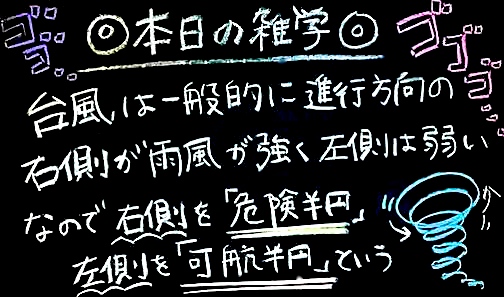 ゴゴゴ
◎本日の雑学◎
ゴゴゴ
台風は一般的に進行方向の
右側が雨風が強く左側は弱い
なので右側を「危険半円」
左側を「可航半円」という